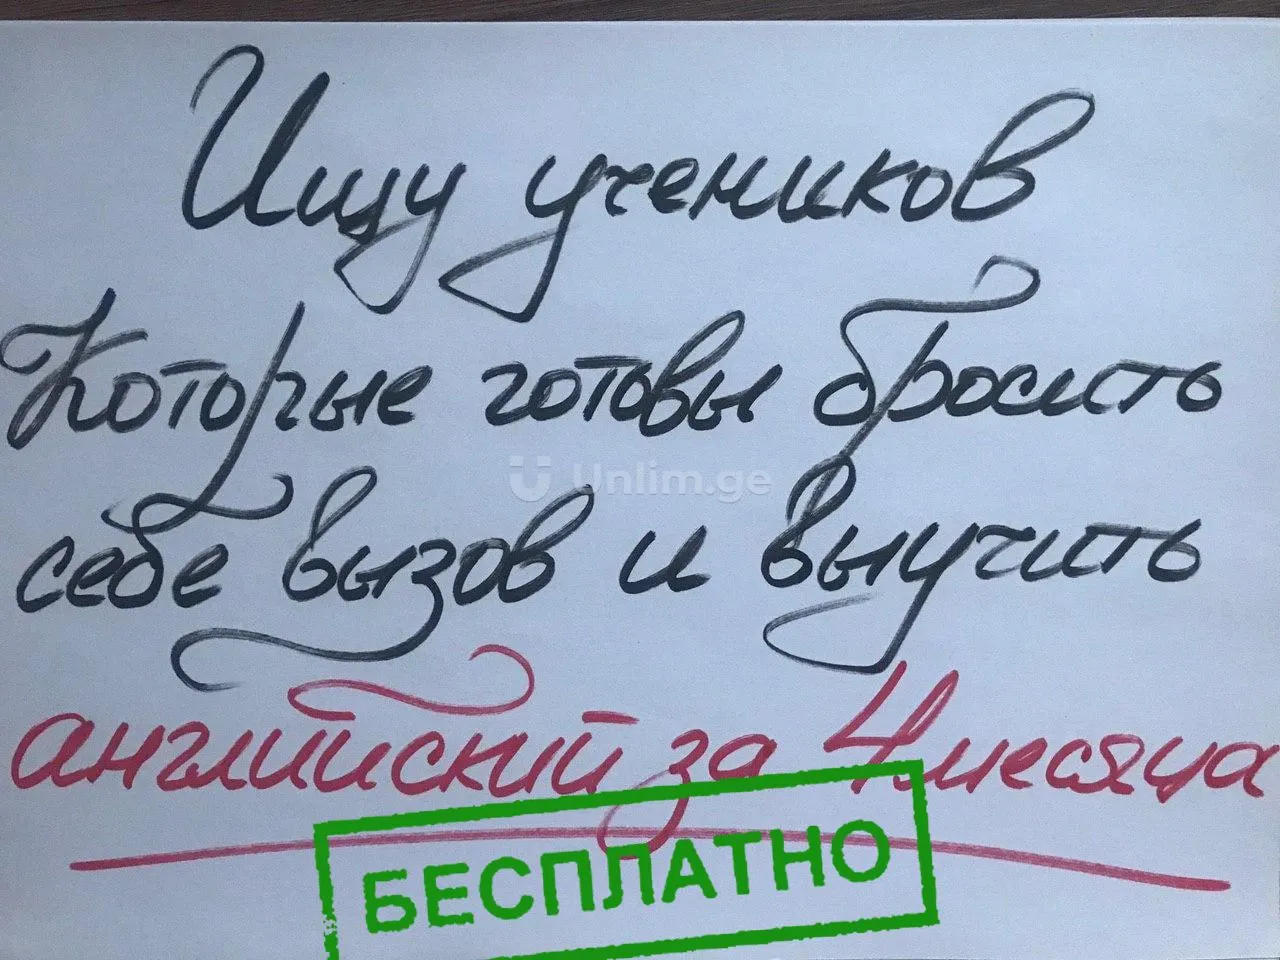 Ищу учеников
Которые готовы бросить
Unlim.ge
себе вызов и выучить
английский за 4 месяца
БЕСПЛАТНО